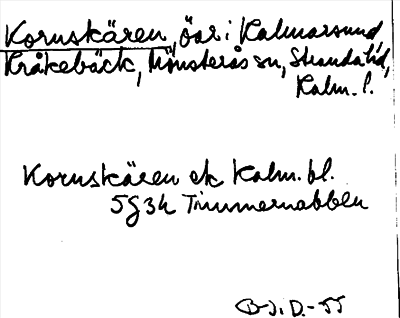 Kornskären, öar i Kalmarsund,
Kråkebäck, Mönsterås sn, Stranda hd,
Kalm. l.
Kornskären ek Kalm. bl.
5g34 Timmernabben
B-J. D.-55